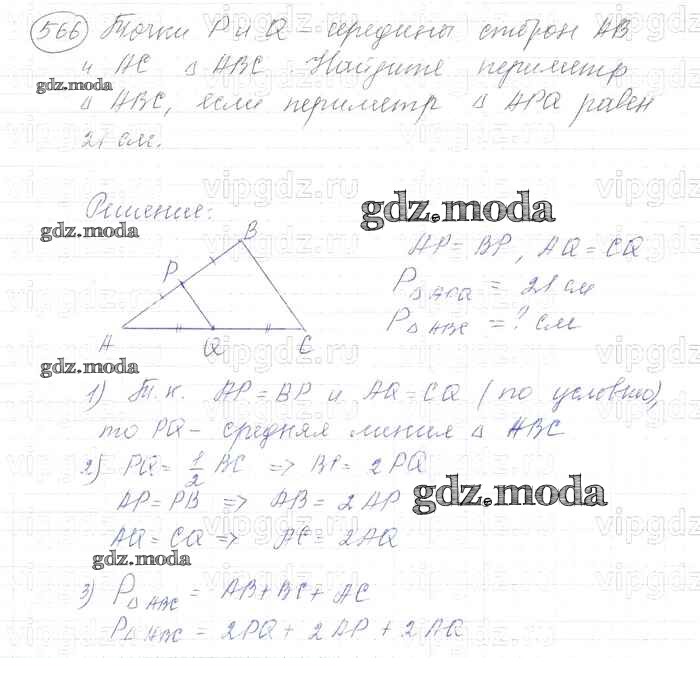 566 Точки P и Q – середины сторон AB
и AC △ ABC. Найдите периметр
gdz.moda
△ ABC, если периметр △ APQ равен
21 см.
vipgdz.ru
Решение:
gdz.moda
gdz.moda
B
P
A
Q
C
AP = BP, AQ = CQ
P△APQ = 21 см
P△ABC = ? см
gdz.moda
1) Т.к. AP = BP и AQ = CQ (по условию),
то PQ – средняя линия △ ABC
2) PQ = 1/2 BC => BC = 2PQ
AP = PB => AB = 2 AP
gdz.moda
AQ = CQ => AC = 2AQ
gdz.moda
3) P△ABC = AB + BC + AC
P△ABC = 2PQ + 2AP + 2AQ